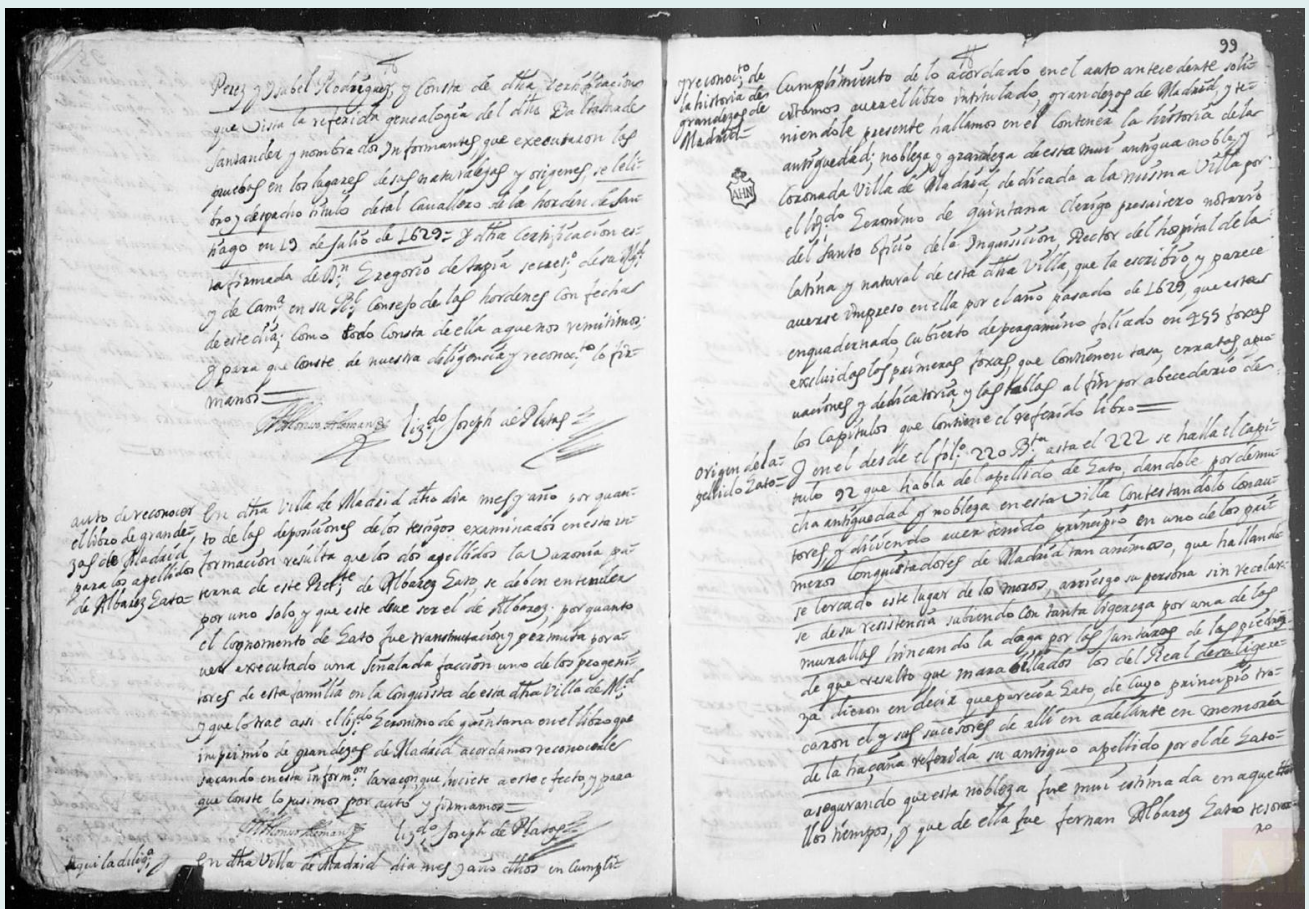 Perez y Ysabel Rodriguez, y Consta de dha Zertificacion
que Vista la referida genealogia del dho Baltasar de
Santander y nombrados Informantes que executaron las
pruebas en los lugares de sus naturalezas y origenes se le li-
bro y despacho titulo de tal Cavallero de la horden de San-
tiago en 19 de Julio de 1629= Y dha Certificacion es-
ta firmada de Dn. Gregorio de tapia secreto. de su Mgd.
y de Cama. en su Rl. Consejo de las hordenes con fecha
de este dia; como todo Consta de ella a que nos remitimos;
Y para que Conste de nuestra diligencia y reconocto. lo fir-
mamos=
Dn Alonso Aleman lizdo. Joseph de Platas
auto de reconocer
el libro de grande-
zas de Madrid
para los apellidos
de Albarez Gato=
En dha Villa de Madrid dho dia mes y año por quan-
to de las deposiciones de los testigos examinados en esta in-
formacion resulta que los dos apellidos la Varonia pa-
terna de este Prete. de Albarez Gato, se deben entender
por uno solo y que este deve ser el de Albarez; por quanto
el Cognomento de Gato fue transmutacion y permuta por a-
ver executado una señalada faccion uno de los progeni-
tores de esta familia en la Conquista de esta dha Villa de Md.
y que lo trae asi el lizdo Geronimo de quintana en el libro que
imprimio de grandezas de Madrid acordamos reconocerle
sacando en esta informon. la raçon que hiciese a este efecto, y para
que conste lo pusimos por auto y firmamos=
Dn Alonso Aleman lizdo Joseph de Platas
Aqui la diliga.
En dha Villa de Madrid dia mes y año dhos en Cumpli-
99
y reconocto. de
la historia de
grandezas de
Madrid=
Cumplimiento de lo acordado en el auto antecedente soli-
citamos aver el libro intitulado, grandezas de Madrid, y te-
niendole presente hallamos en el Contener la historia de la
antiguedad; nobleza y grandeza de esta mui antigua noble y
Coronada Villa de Madrid, dedicada a la misma Villa por
el lizdo Geronimo de quintana Clerigo presvitero notario
del Santo oficio de la Inquisicion, Rector del hospital de la
latina y natural de esta dha Villa, que la escribio, y parece
averse impreso en ella por el año pasado de 1629, que esta
enquadernado, Cubierto de pergamino foliado en 455 foxas
excluidas las primeras foxas, que Contienen tasa, erratas apro-
vaciones y dedicatoria y las tablas al fin por abecedario de
los Capitulos que Contiene el referido libro=
AHN
origen del a-
pellido Gato=
Y en el desde el folo. 220 Bta asta el 222 se halla el Capi-
tulo 92 que habla del apellido de Gato, dandole por de mu-
cha antiguedad y nobleza en esta Villa Contestandolo Con au-
tores, y diciendo aver tenido principio en uno de los pri-
meros Conquistadores de Madrid tan animoso, que hallando
se Cercado este lugar de los moros, arriesgo su persona sin recelar-
se de su resistencia subiendo Con tanta ligereza por una de las
murallas hincando la daga por las Junturas de las piedras
de que resulto que marabillados los del Real de su ligere-
za dieron en decir que parecia Gato, de cuyo principio tro-
caron el y sus sucesores de alli en adelante en memoria
de la haçaña referida su antiguo apellido por el de Gato=
asegurando que esta nobleza fue mui estimada en aque-
llos tiempos, y que de ella fue fernan Albarez Gato tesore-
ro